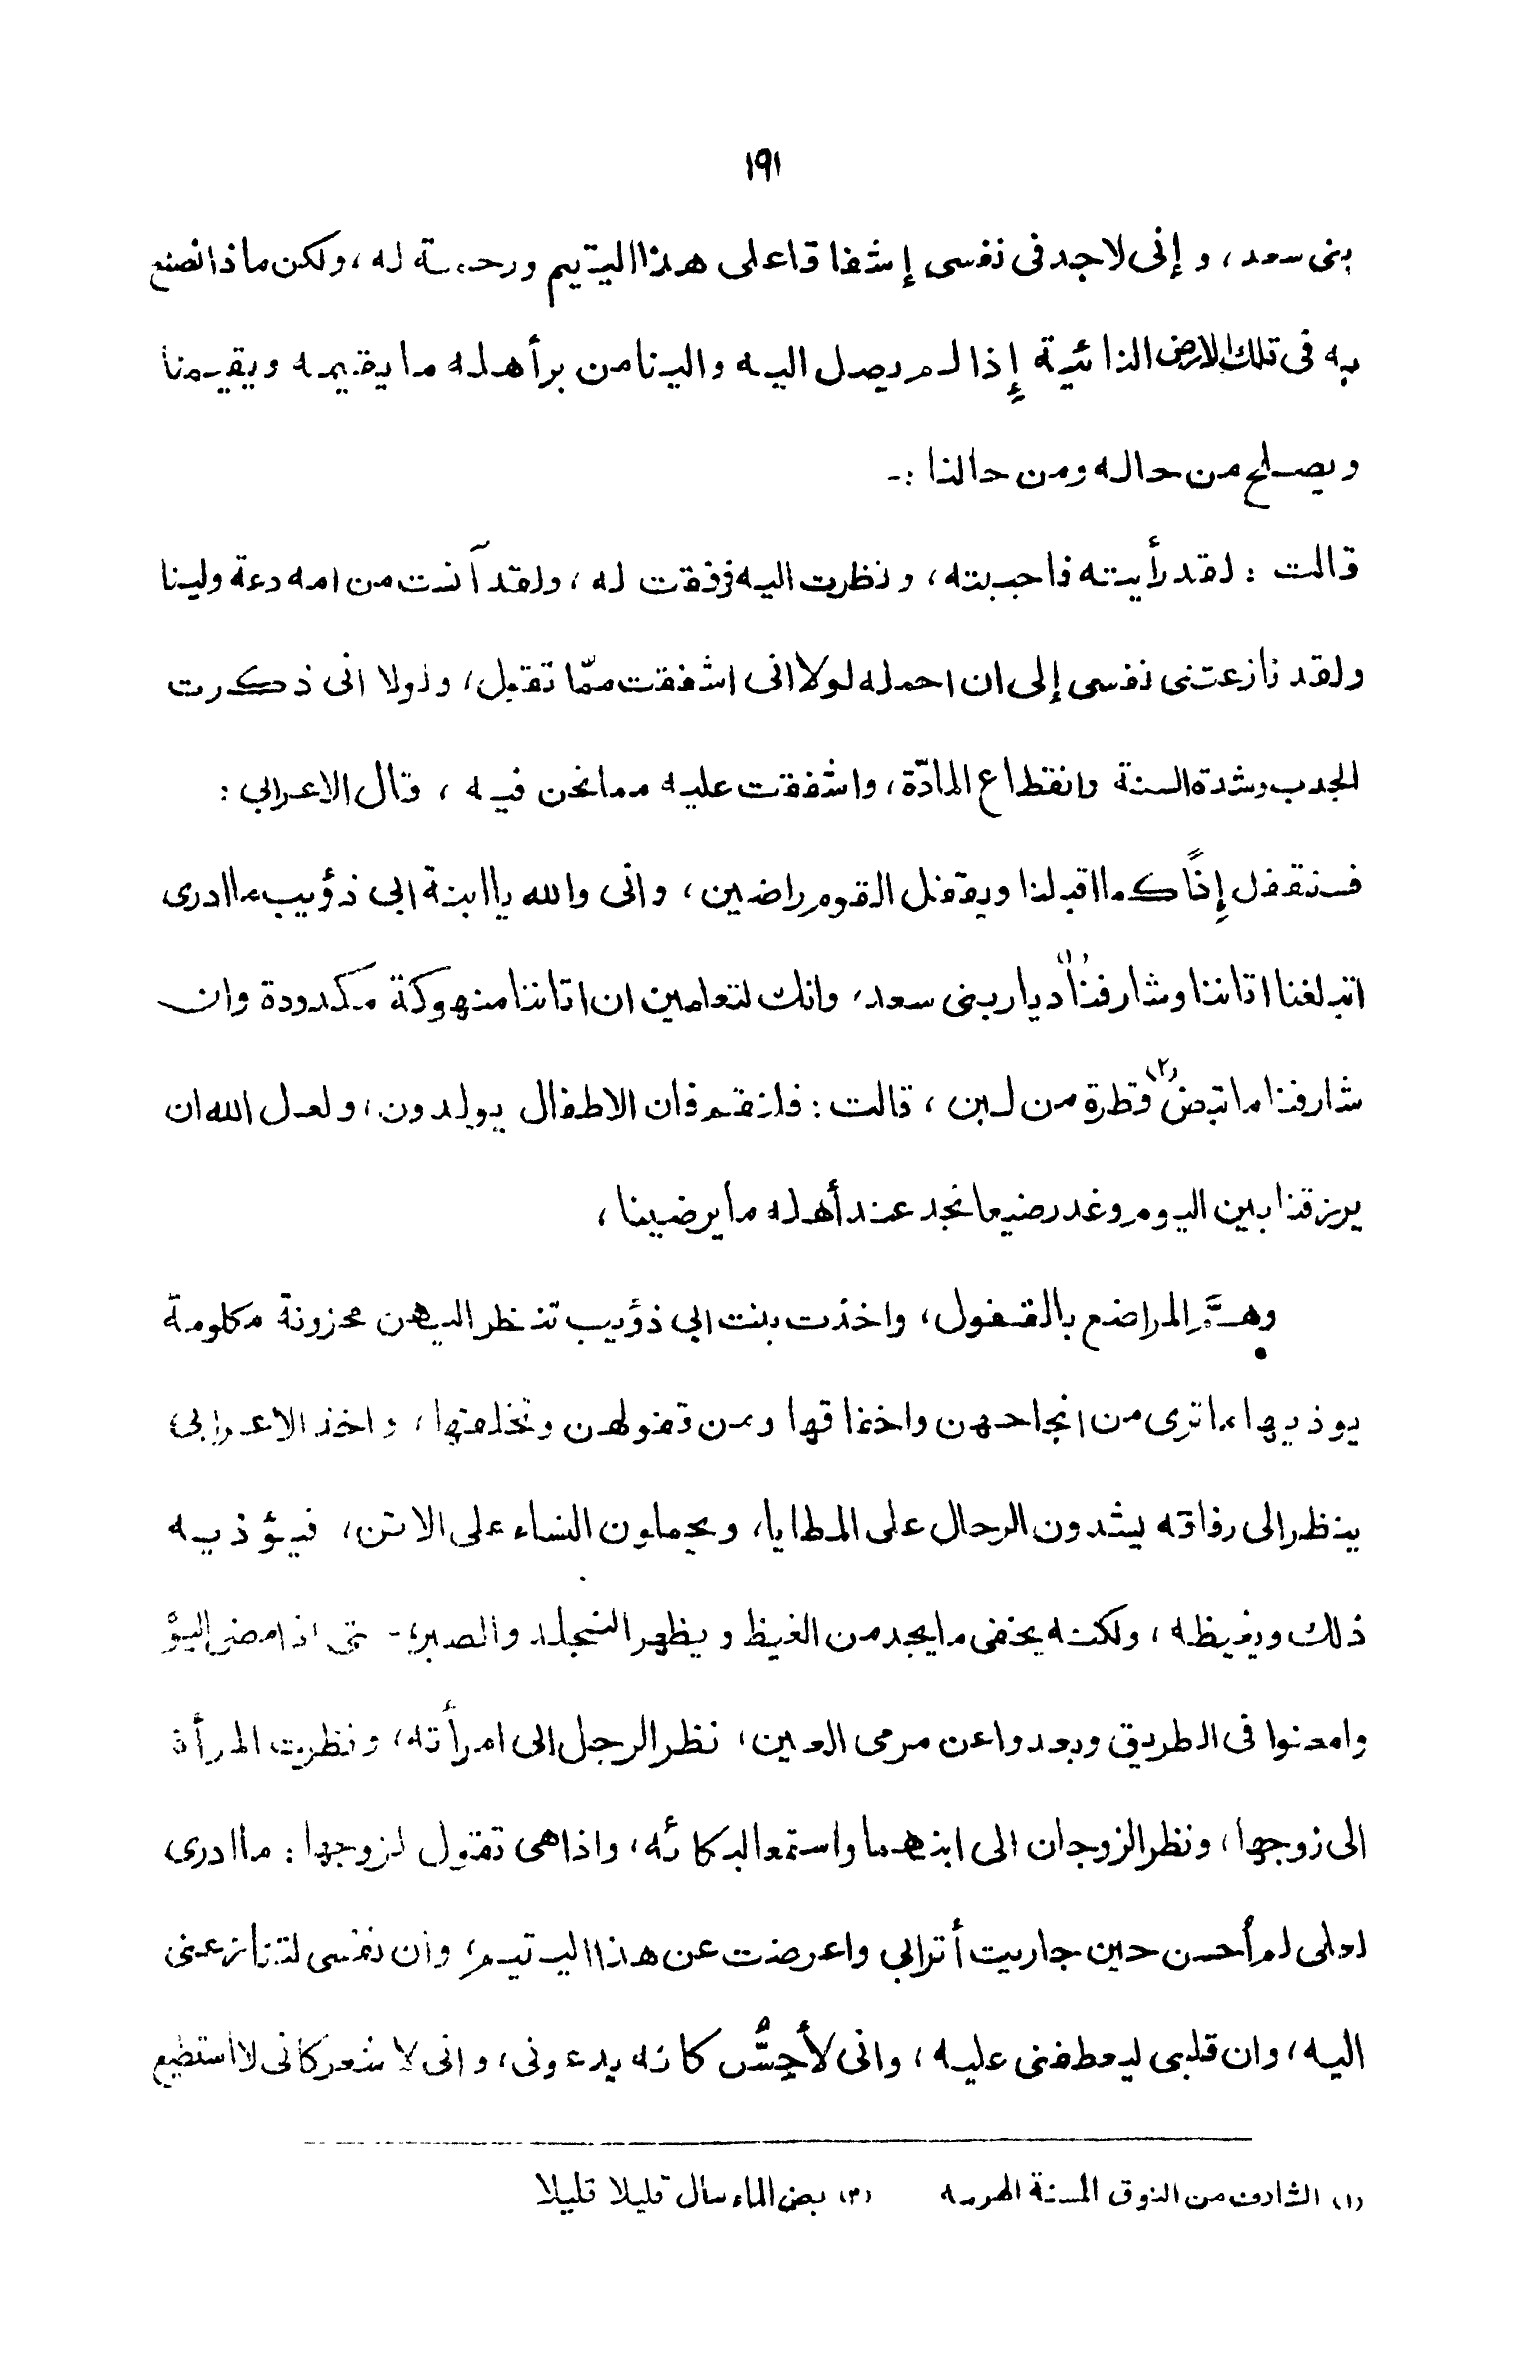 ١٩١
بنى سعد، و إنى لاجد فى نفسى إشفاقا على هذا اليتيم ورحمة له، ولكن ماذا نصنع
به فى تلك الارض النائية إذا لم يصل اليه والينا من برأهله ما يقيمه ويقيمنا
ويصلح من حاله ومن حالنا :-
قالت : لقد رأيته فاحببته، ونظرت اليه فرفقت له، ولقد آنست من امه دعة ولينا
ولقد نازعتنى نفسى إلى ان احمله لولا انى اشفقت ممّا تقبل، ولولا انى ذكرت
الجدب وشدة السنة وانقطاع المادّة، واشفقت عليه مما نحن فيه ، قال الاعرابي :
فسنقفل إذًا كما اقبلنا ويقفل القوم راضين، وانى والله يا ابنة ابى ذؤيب ما ادرى
اتبلغنا اتاننا وشارفنا (١) ديار بنى سعد، وانك لتعلمين ان اتاننا منهوكة مكدودة وان
شارفنا ما تبض (٢) قطرة من لبن ، قالت : فلنقم فان الاطفال يولدون، ولعل الله ان
يرزقنا بين اليوم وغد رضيعا نجد عند أهله ما يرضينا ،
وهمَّ المراضع بالقفول، واخذت بنت ابى ذؤيب تنظر اليهن محزونة مكلومة
يوذيها ما ترى من انجاحهن واخفاقها ومن قفولهن وتخلفها، واخذ الاعرابى
ينظر الى رفاقه يشدون الرحال على المطايا، ويحملون النساء على الاتن، فيؤذيه
ذلك ويغيظه ، ولكنه يخفى ما يجد من الغيظ ويظهر التجلد والصبر، - حتى اذا مضى اليؤ
وامعنوا فى الطريق وبعدوا عن مرمى العين، نظر الرجل الى امرأته، ونظرت المرأة
الى زوجها، ونظر الزوجان الى ابنهما واستمعا لبكائه، واذا هى تقول لزوجها : ما ادرى
لعلى لم أحسن حين جاريت أترابي واعرضت عن هذا اليتيم، وان نفسى لتنازعنى
اليه، وان قلبى ليعطفنى عليه ، وانى لأحِسُّ كانه يدعونى، وانى لا شعر كانى لا استطيع
(١) الشارف من النوق المسنة الهرمة (٢) بض الماء سال قليلا قليلا